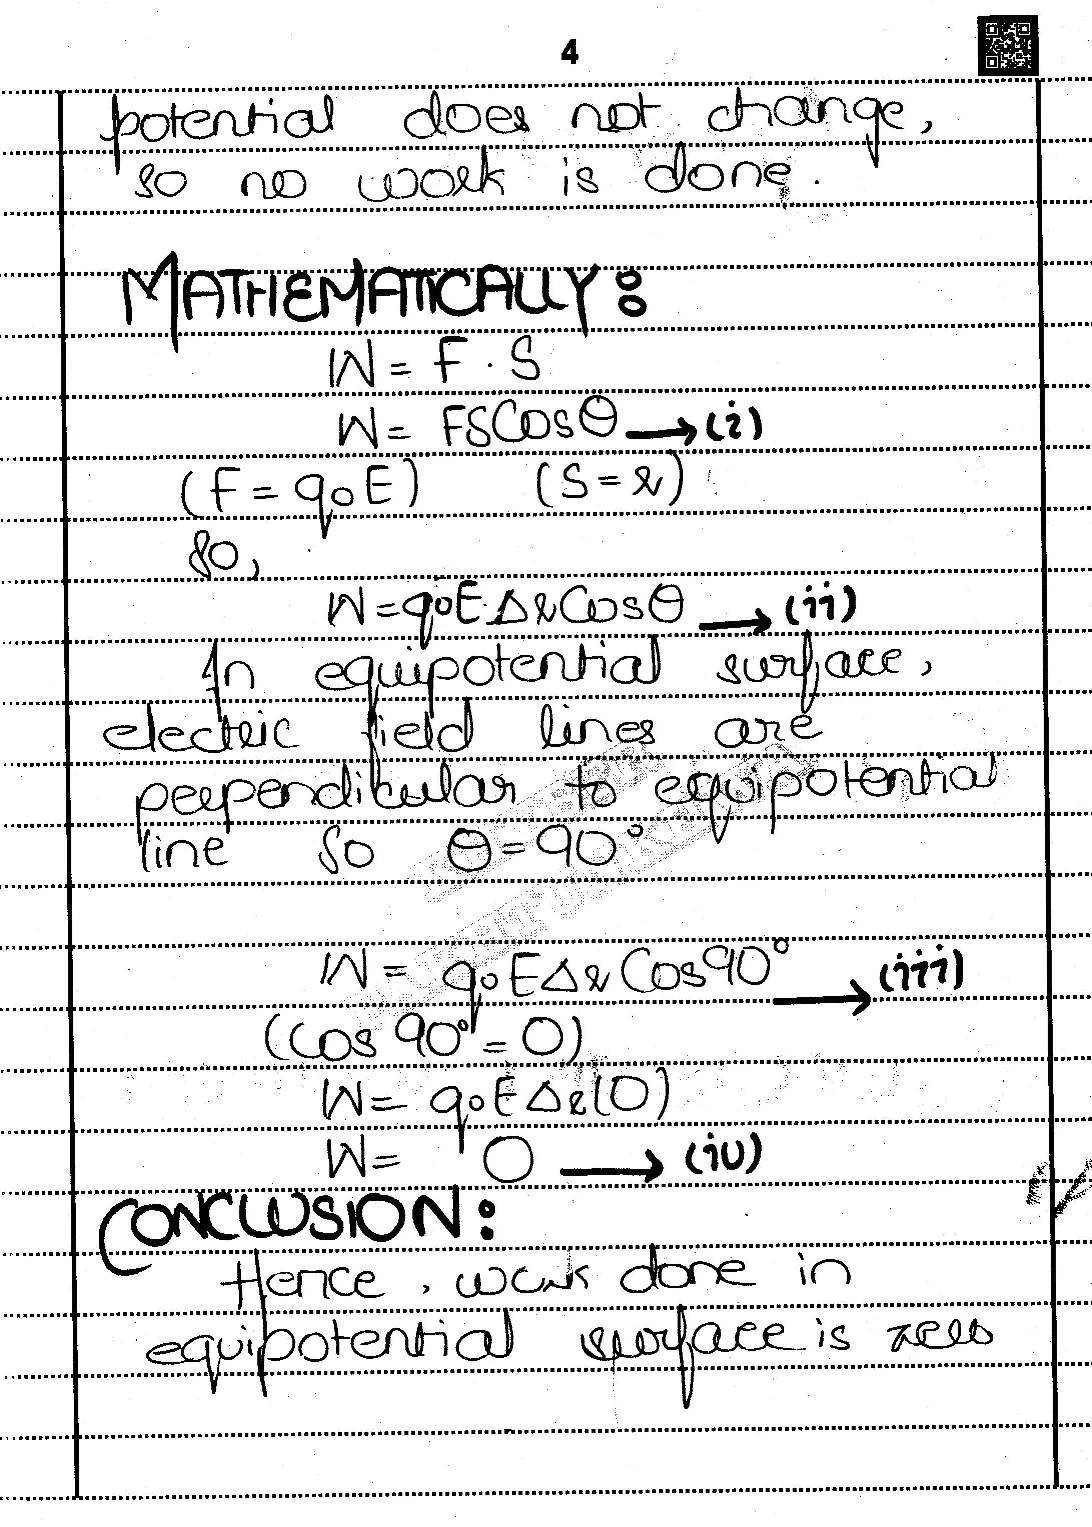 4
potential does not change,
so no work is done.
MATHEMATICALLY:
W = F . S
W = FSCosθ → (i)
(F = q₀E) (S = r)
So,
W = q₀E.ΔrCosθ → (ii)
In equipotential surface,
electric field lines are
perpendicular to equipotential
line so θ = 90°
W = q₀EΔrCos90° → (iii)
(Cos 90° = 0)
W = q₀EΔr(0)
W = 0 → (iv)
CONCLUSION:
Hence, work done in
equipotential surface is zero